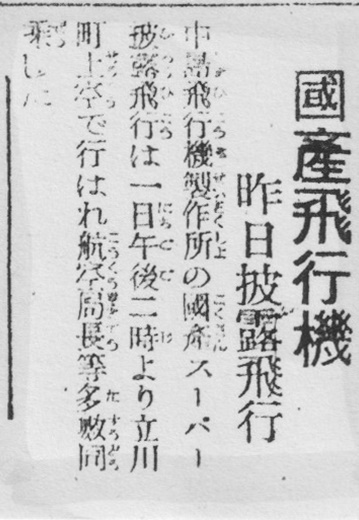 國產飛行機
昨日披露飛行
中島飛行機製作所の國產スーパー
披露飛行は一日午後二時より立川
町上空で行はれ航空局長等多數同
乘した